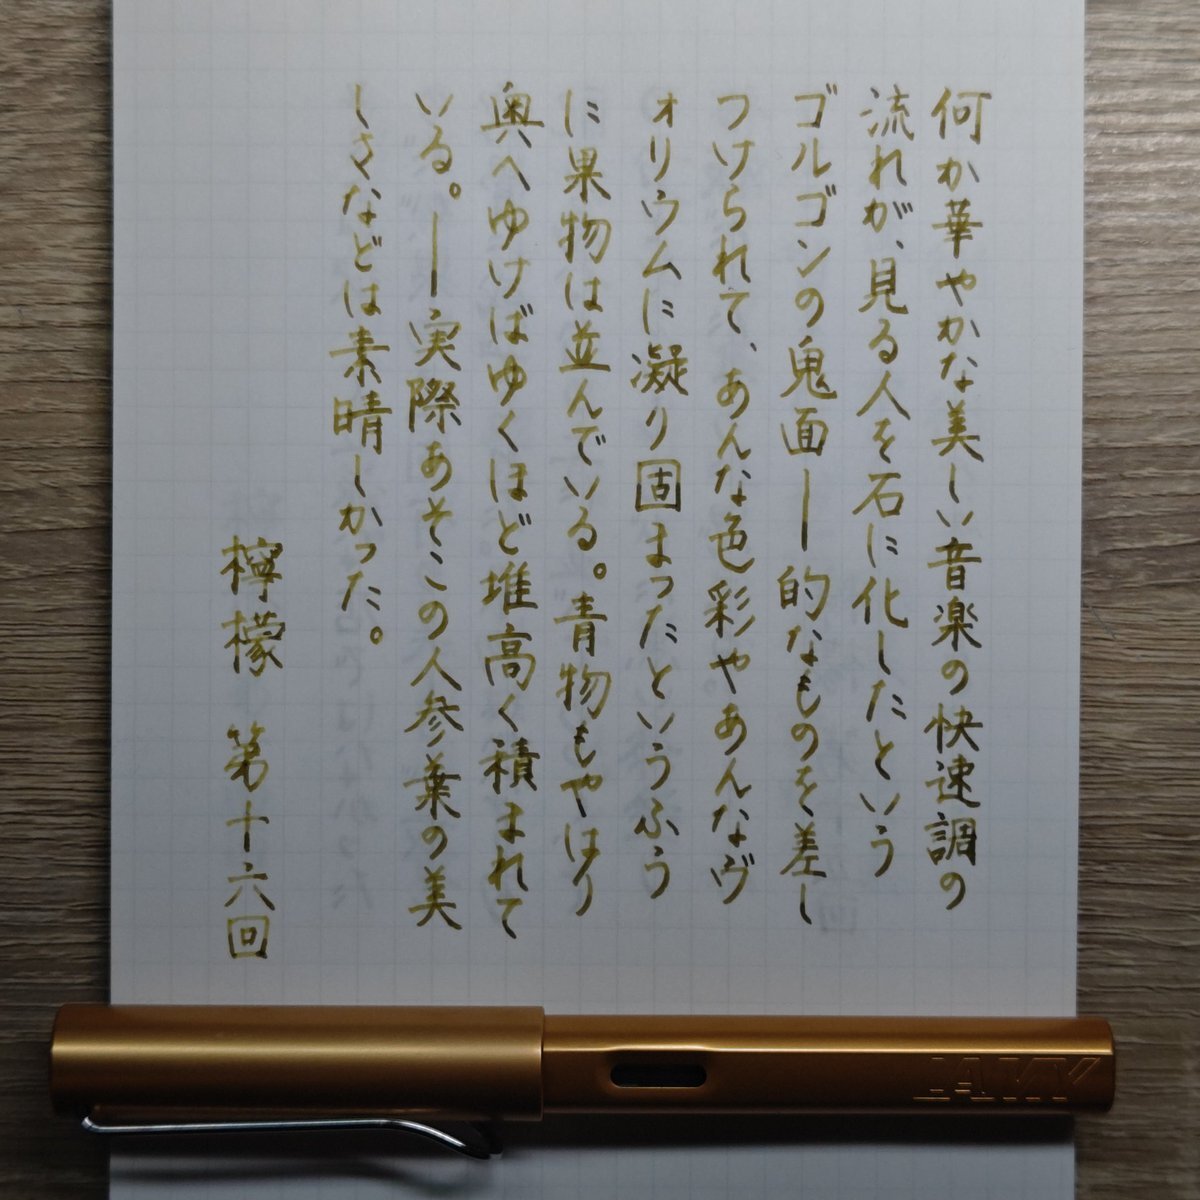 何か華やかな美しい音楽の快速調の
流れが、見る人を石に化したという
ゴルゴンの鬼面―的なものを差し
つけられて、あんな色彩やあんなヴ
ォリウムに凝り固まったというふう
に果物は並んでいる。青物もやはり
奥へゆけばゆくほど堆高く積まれて
いる。―実際あそこの人参葉の美
しさなどは素晴しかった。
檸檬 第十六回
LAMY